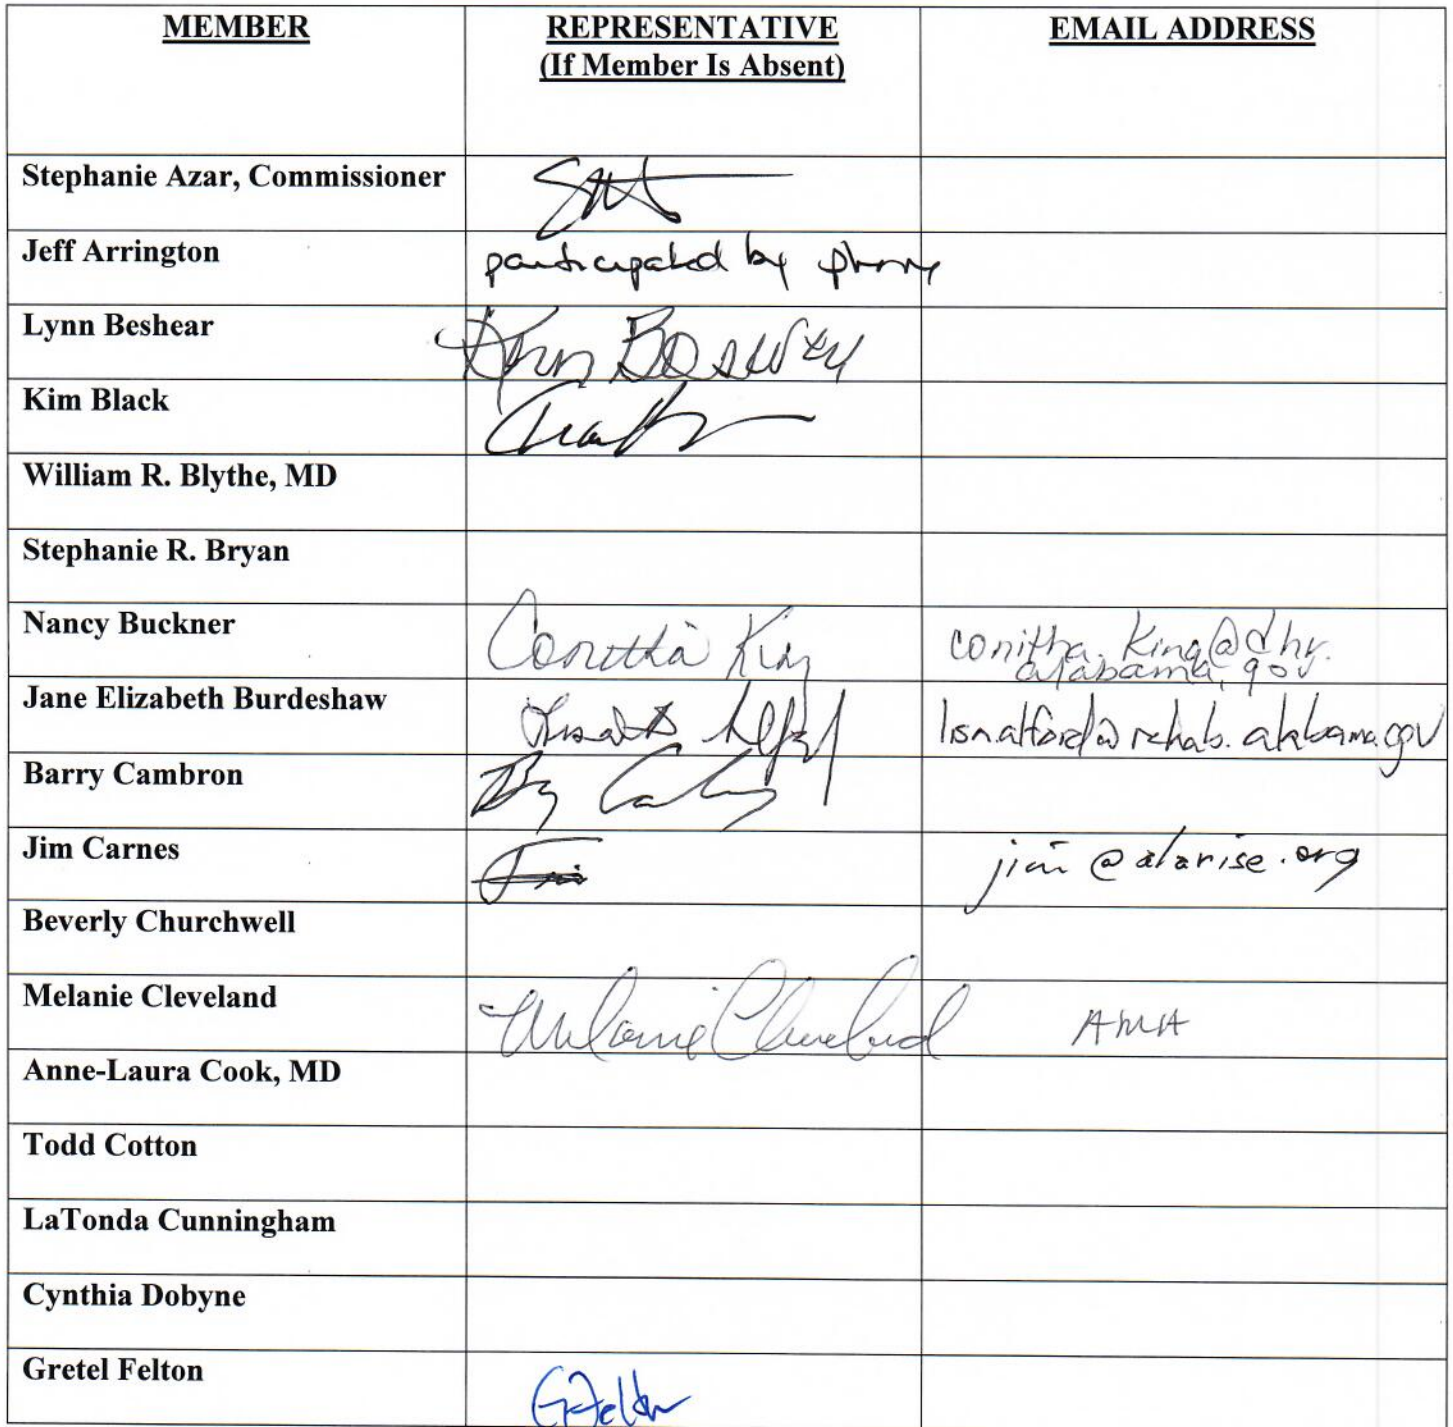 MEMBER REPRESENTATIVE EMAIL ADDRESS
(If Member Is Absent)
Stephanie Azar, Commissioner
Jeff Arrington participated by phone
Lynn Beshear Lynn Beshear
Kim Black
William R. Blythe, MD
Stephanie R. Bryan
Nancy Buckner Conitha King conitha.King@dhr.
alabama.gov
Jane Elizabeth Burdeshaw
Barry Cambron
Jim Carnes Jim jim@alarise.org
Beverly Churchwell
Melanie Cleveland Melanie Cleveland AMA
Anne-Laura Cook, MD
Todd Cotton
LaTonda Cunningham
Cynthia Dobyne
Gretel Felton G Felton